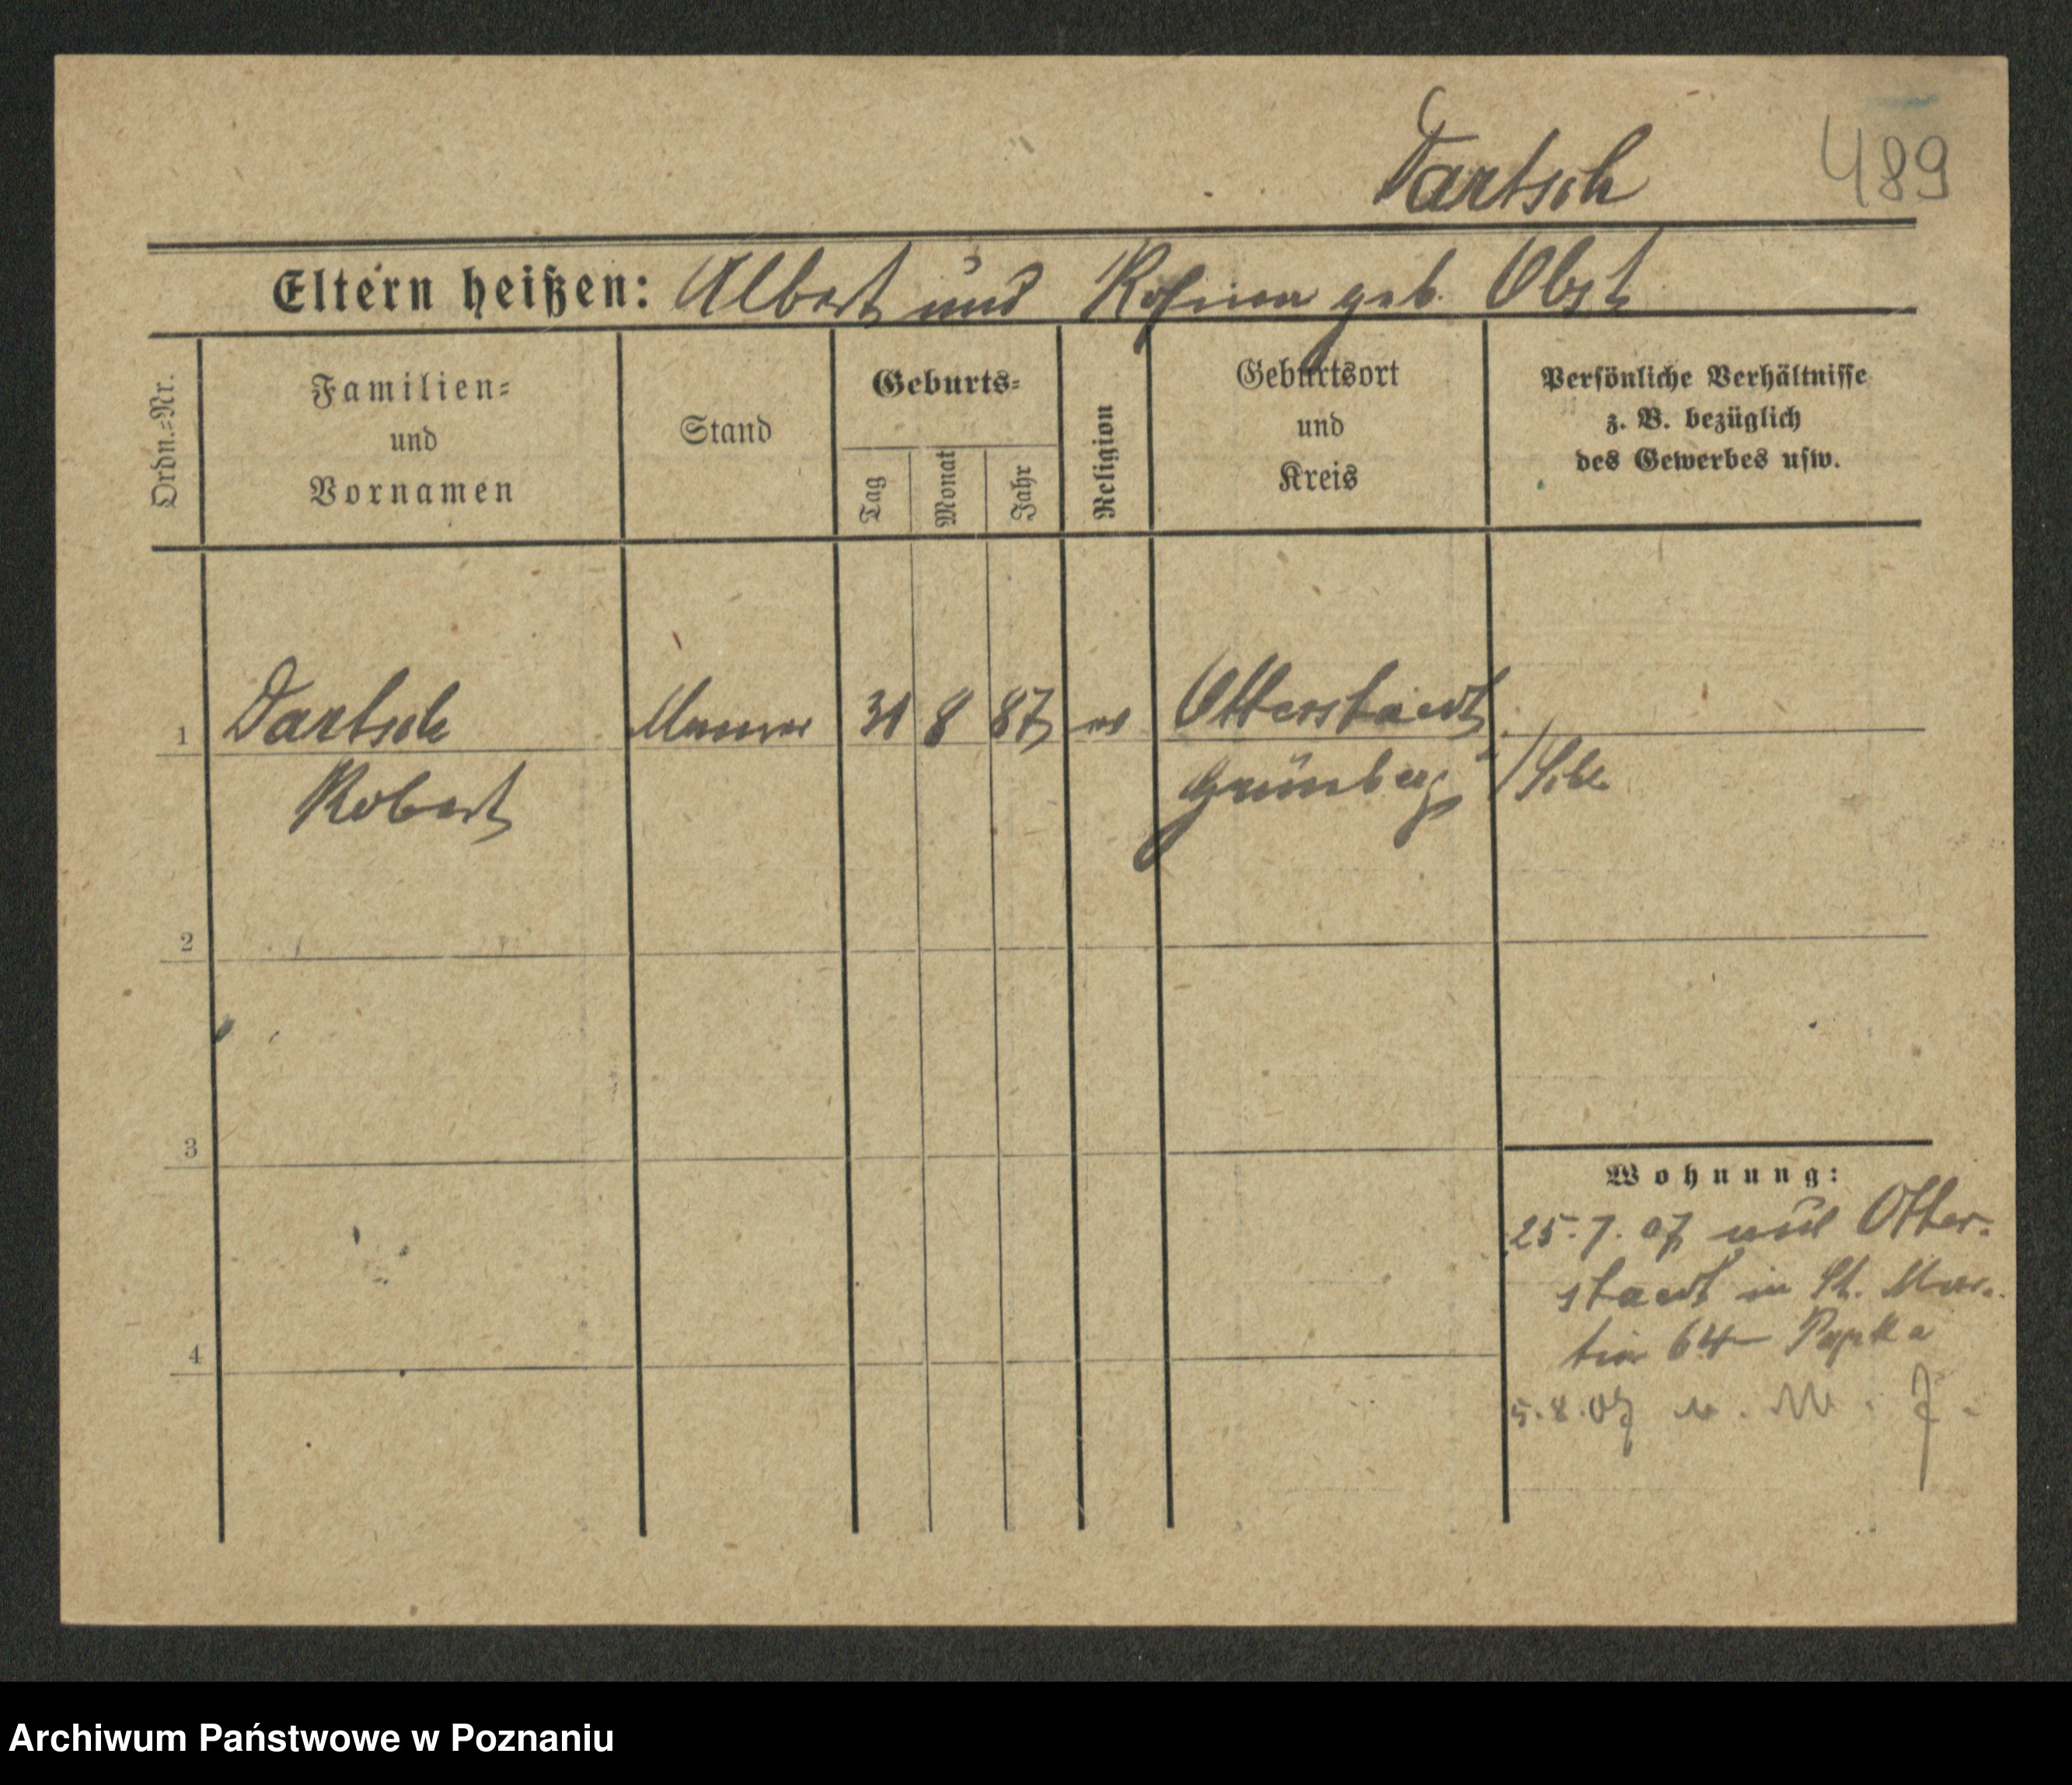 Dartsch 489
Eltern heißen: Albert und Rosina geb. Obst
Ordn.=Nr.
Familien=
und
Vornamen
Stand
Geburts=
Tag
Monat
Jahr
Religion
Geburtsort
und
Kreis
Persönliche Verhältnisse
z. B. bezüglich
des Gewerbes usw.
1 Dartsch Maurer 31 8 87 ev Otterstaedt
Robert Grünberg /Schl.
2
3
4
Wohnung:
25.7.07 aus Otter-
staedt in St. Mar-
tin 64
5.8.07 n. M.
Archiwum Państwowe w Poznaniu